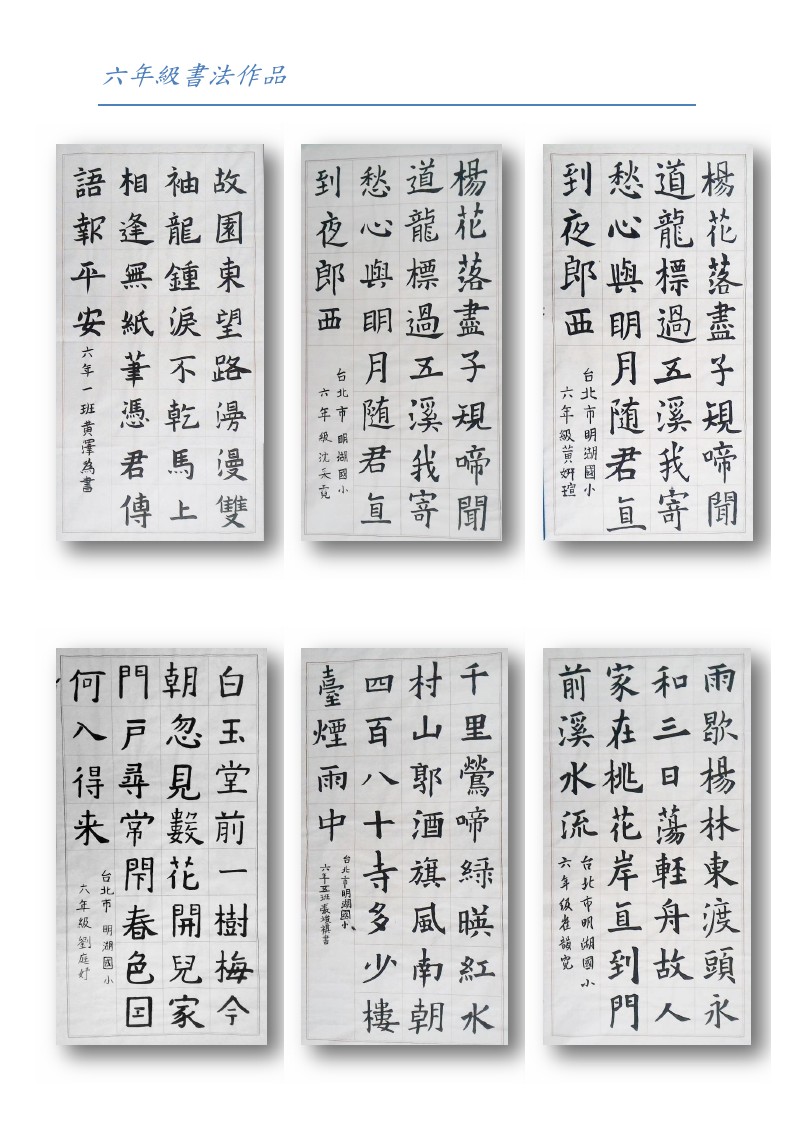 六年級書法作品
故園東望路漫漫雙
袖龍鍾淚不乾馬上
相逢無紙筆憑君傳
語報平安
六年一班黃澤為書
楊花落盡子規啼聞
道龍標過五溪我寄
愁心與明月随君直
到夜郎西
台北市明湖國小
六年級沈
楊花落盡子規啼聞
道龍標過五溪我寄
愁心與明月随君直
到夜郎西
台北市明湖國小
六年級黃妍瑄
白玉堂前一樹梅今
朝忽見數花開兒家
門戶尋常閇春色因
何入得来
台北市明湖國小
六年級劉庭妤
千里鶯啼綠暎紅水
村山郭酒旗風南朝
四百八十寺多少樓
臺煙雨中
台北市明湖國小
六年五班
雨歇楊林東渡頭永
和三日蕩輕舟故人
家在桃花岸直到門
前溪水流
台北市明湖國小
六年级崔韻